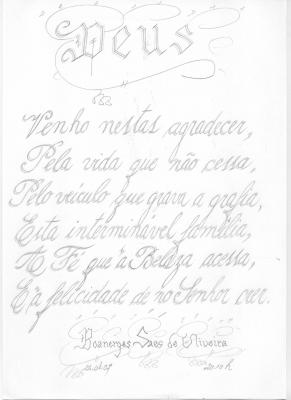 Deus
Venho nestas agradecer,
Pela vida que não cessa,
Pelo veículo que grava a grafia,
Esta interminável família,
A Fé que "a Beleza acessa,
E "a felicidade de no Senhor crer.
Boanerges Saes de Oliveira
20:10 h